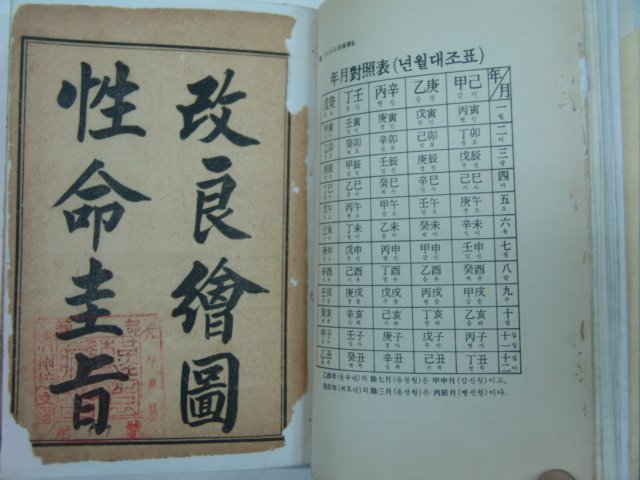 改良繪圖
性命圭旨
年月對照表(년월대조표)
戊癸 丁壬 丙辛 乙庚 甲己 年/月
甲寅 壬寅 庚寅 戊寅 丙寅 一
乙卯 癸卯 辛卯 己卯 丁卯 二
丙辰 甲辰 壬辰 庚辰 戊辰 三
丁巳 乙巳 癸巳 辛巳 己巳 四
戊午 丙午 甲午 壬午 庚午 五
己未 丁未 乙未 癸未 辛未 六
庚申 戊申 丙申 甲申 壬申 七
辛酉 己酉 丁酉 乙酉 癸酉 八
壬戌 庚戌 戊戌 丙戌 甲戌 九
癸亥 辛亥 己亥 丁亥 乙亥 十
甲子 壬子 庚子 戊子 丙子 十一
乙丑 癸丑 辛丑 己丑 丁丑 十二
乙酉年(을유년)의 陰七月(음칠월)은 甲申月(갑신월)이고,
癸卯年(계묘년)의 陰三月(음삼월)은 丙辰月(병진월)이다.